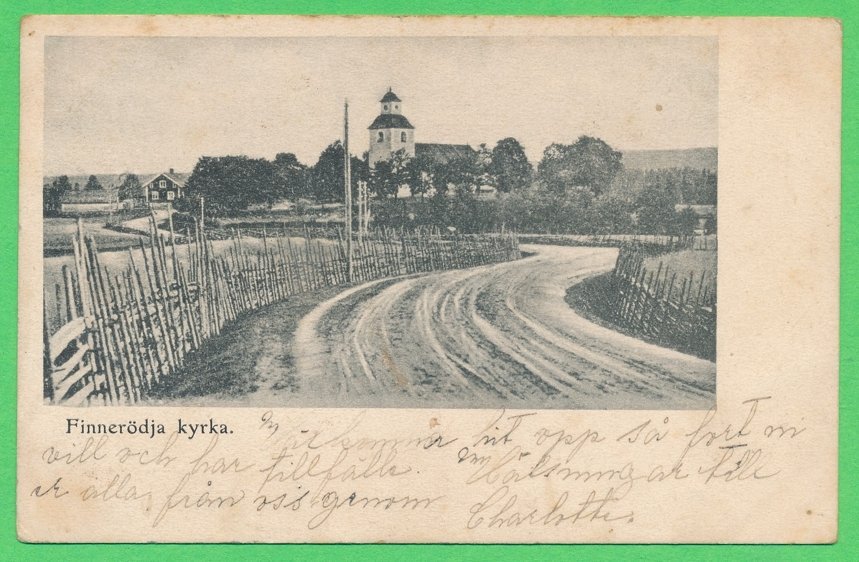 Finnerödja kyrka.
hit opp så fort ni
vill och har tillfälle. Hälsningar till
er alla från oss genom
Charlotte.